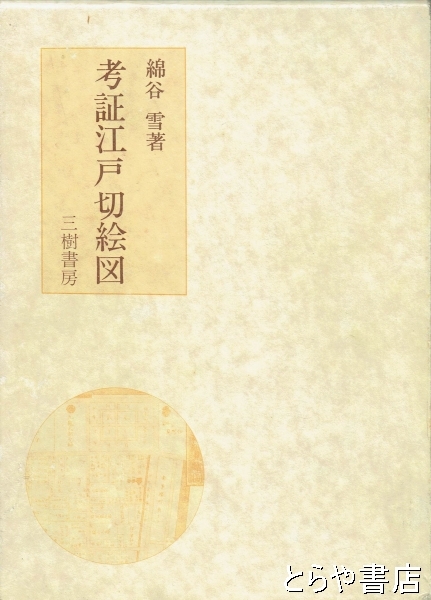 綿谷 雪著
考証江戸切絵図
三樹書房
とらや書店